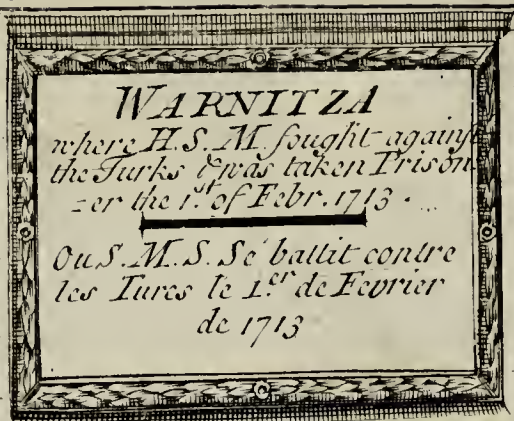 WARNITZA
where H. S. M. fought against
the Turks & was taken Prison
=er the 1.st of Febr. 1713.
Ou S. M. S. Sé battit contre
les Turcs le 1.er de Fevrier
de 1713